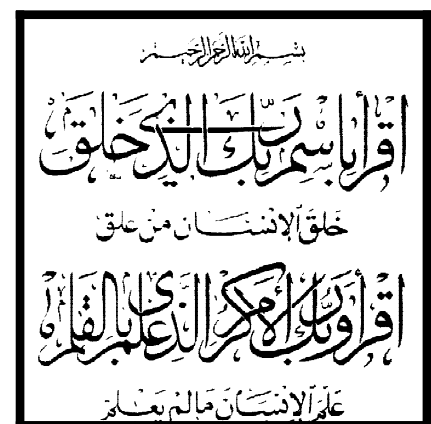 بسم الله الرحمن الرحيم
اقرأ باسم ربك الذي خلق
خلق الإنسان من علق
اقرأ وربك الأكرم الذي علم بالقلم
علم الإنسان مالم يعلم